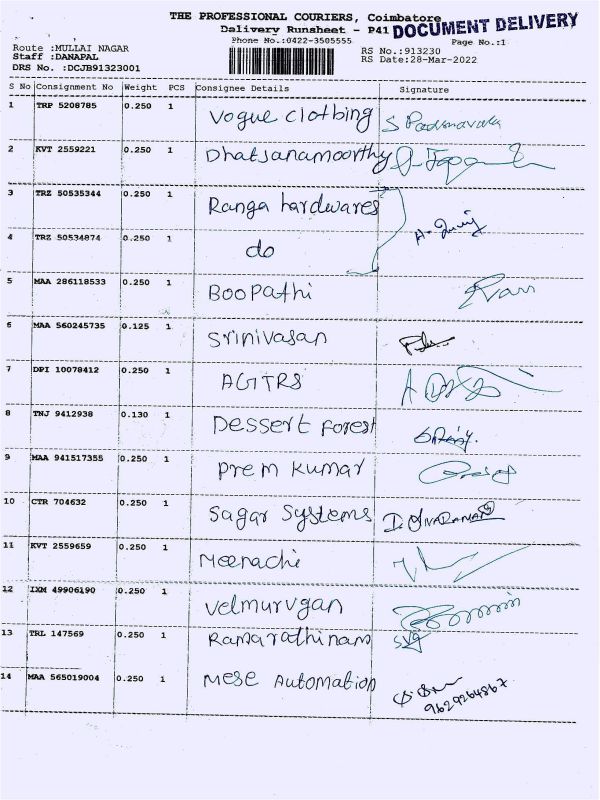 THE PROFESSIONAL COURIERS, Coimbatore
Delivery Runsheet - P41 DOCUMENT DELIVERY
Phone No.:0422-3505555 Page No.:1
Route :MULLAI NAGAR RS No.:913230
Staff :DANAPAL RS Date:28-Mar-2022
DRS No. :DCJB91323001
S No Consignment No Weight PCS Consignee Details Signature
1 TRP 5208785 0.250 1 Vogue clothing S Padmavathi
2 KVT 2559221 0.250 1
3 TRZ 50535344 0.250 1 Ranga hardwares
4 TRZ 50534874 0.250 1 do
5 MAA 286118533 0.250 1 Boopathi
6 MAA 560245735 0.125 1 Srinivasan
7 DPI 10078412 0.250 1
8 TNJ 9412938 0.130 1 Dessert Forest
9 MAA 941517355 0.250 1 Prem Kumar
10 CTR 704632 0.250 1 Sagar Systems
11 KVT 2559659 0.250 1 Meenachi
12 IXM 49906190 0.250 1 Velmurugan
13 TRL 147569 0.250 1 Ramarathinam
14 MAA 565019004 0.250 1 Mese Automation
9629264867